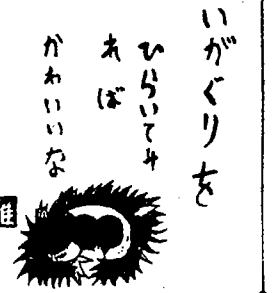 いがぐりを
ひらいてみ
れば
かわいいな